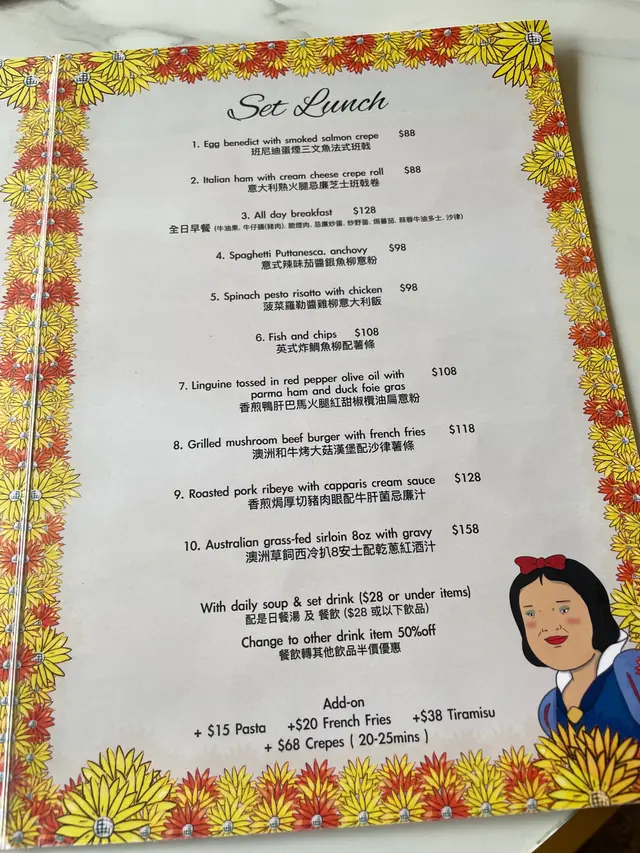 Set Lunch
1. Egg benedict with smoked salmon crepe $88
班尼迪蛋煙三文魚法式班戟
2. Italian ham with cream cheese crepe roll $88
意大利熟火腿忌廉芝士班戟卷
3. All day breakfast $128
全日早餐 (牛油果, 牛仔腸(豬肉), 脆煙肉, 忌廉炒蛋, 炒野菌, 焗蕃茄, 蒜蓉牛油多士, 沙律)
4. Spaghetti Puttanesca, anchovy $98
意式辣味茄醬銀魚柳意粉
5. Spinach pesto risotto with chicken $98
菠菜羅勒醬雞柳意大利飯
6. Fish and chips $108
英式炸鯛魚柳配薯條
7. Linguine tossed in red pepper olive oil with $108
parma ham and duck foie gras
香煎鴨肝巴馬火腿紅甜椒欖油扁意粉
8. Grilled mushroom beef burger with french fries $118
澳洲和牛烤大菇漢堡配沙律薯條
9. Roasted pork ribeye with capparis cream sauce $128
香煎焗厚切豬肉眼配牛肝菌忌廉汁
10. Australian grass-fed sirloin 8oz with gravy $158
澳洲草飼西冷扒8安士配乾蔥紅酒汁
With daily soup & set drink ($28 or under items)
配是日餐湯 及 餐飲 ($28 或以下飲品)
Change to other drink item 50%off
餐飲轉其他飲品半價優惠
Add-on
+ $15 Pasta +$20 French Fries +$38 Tiramisu
+ $68 Crepes ( 20-25mins )